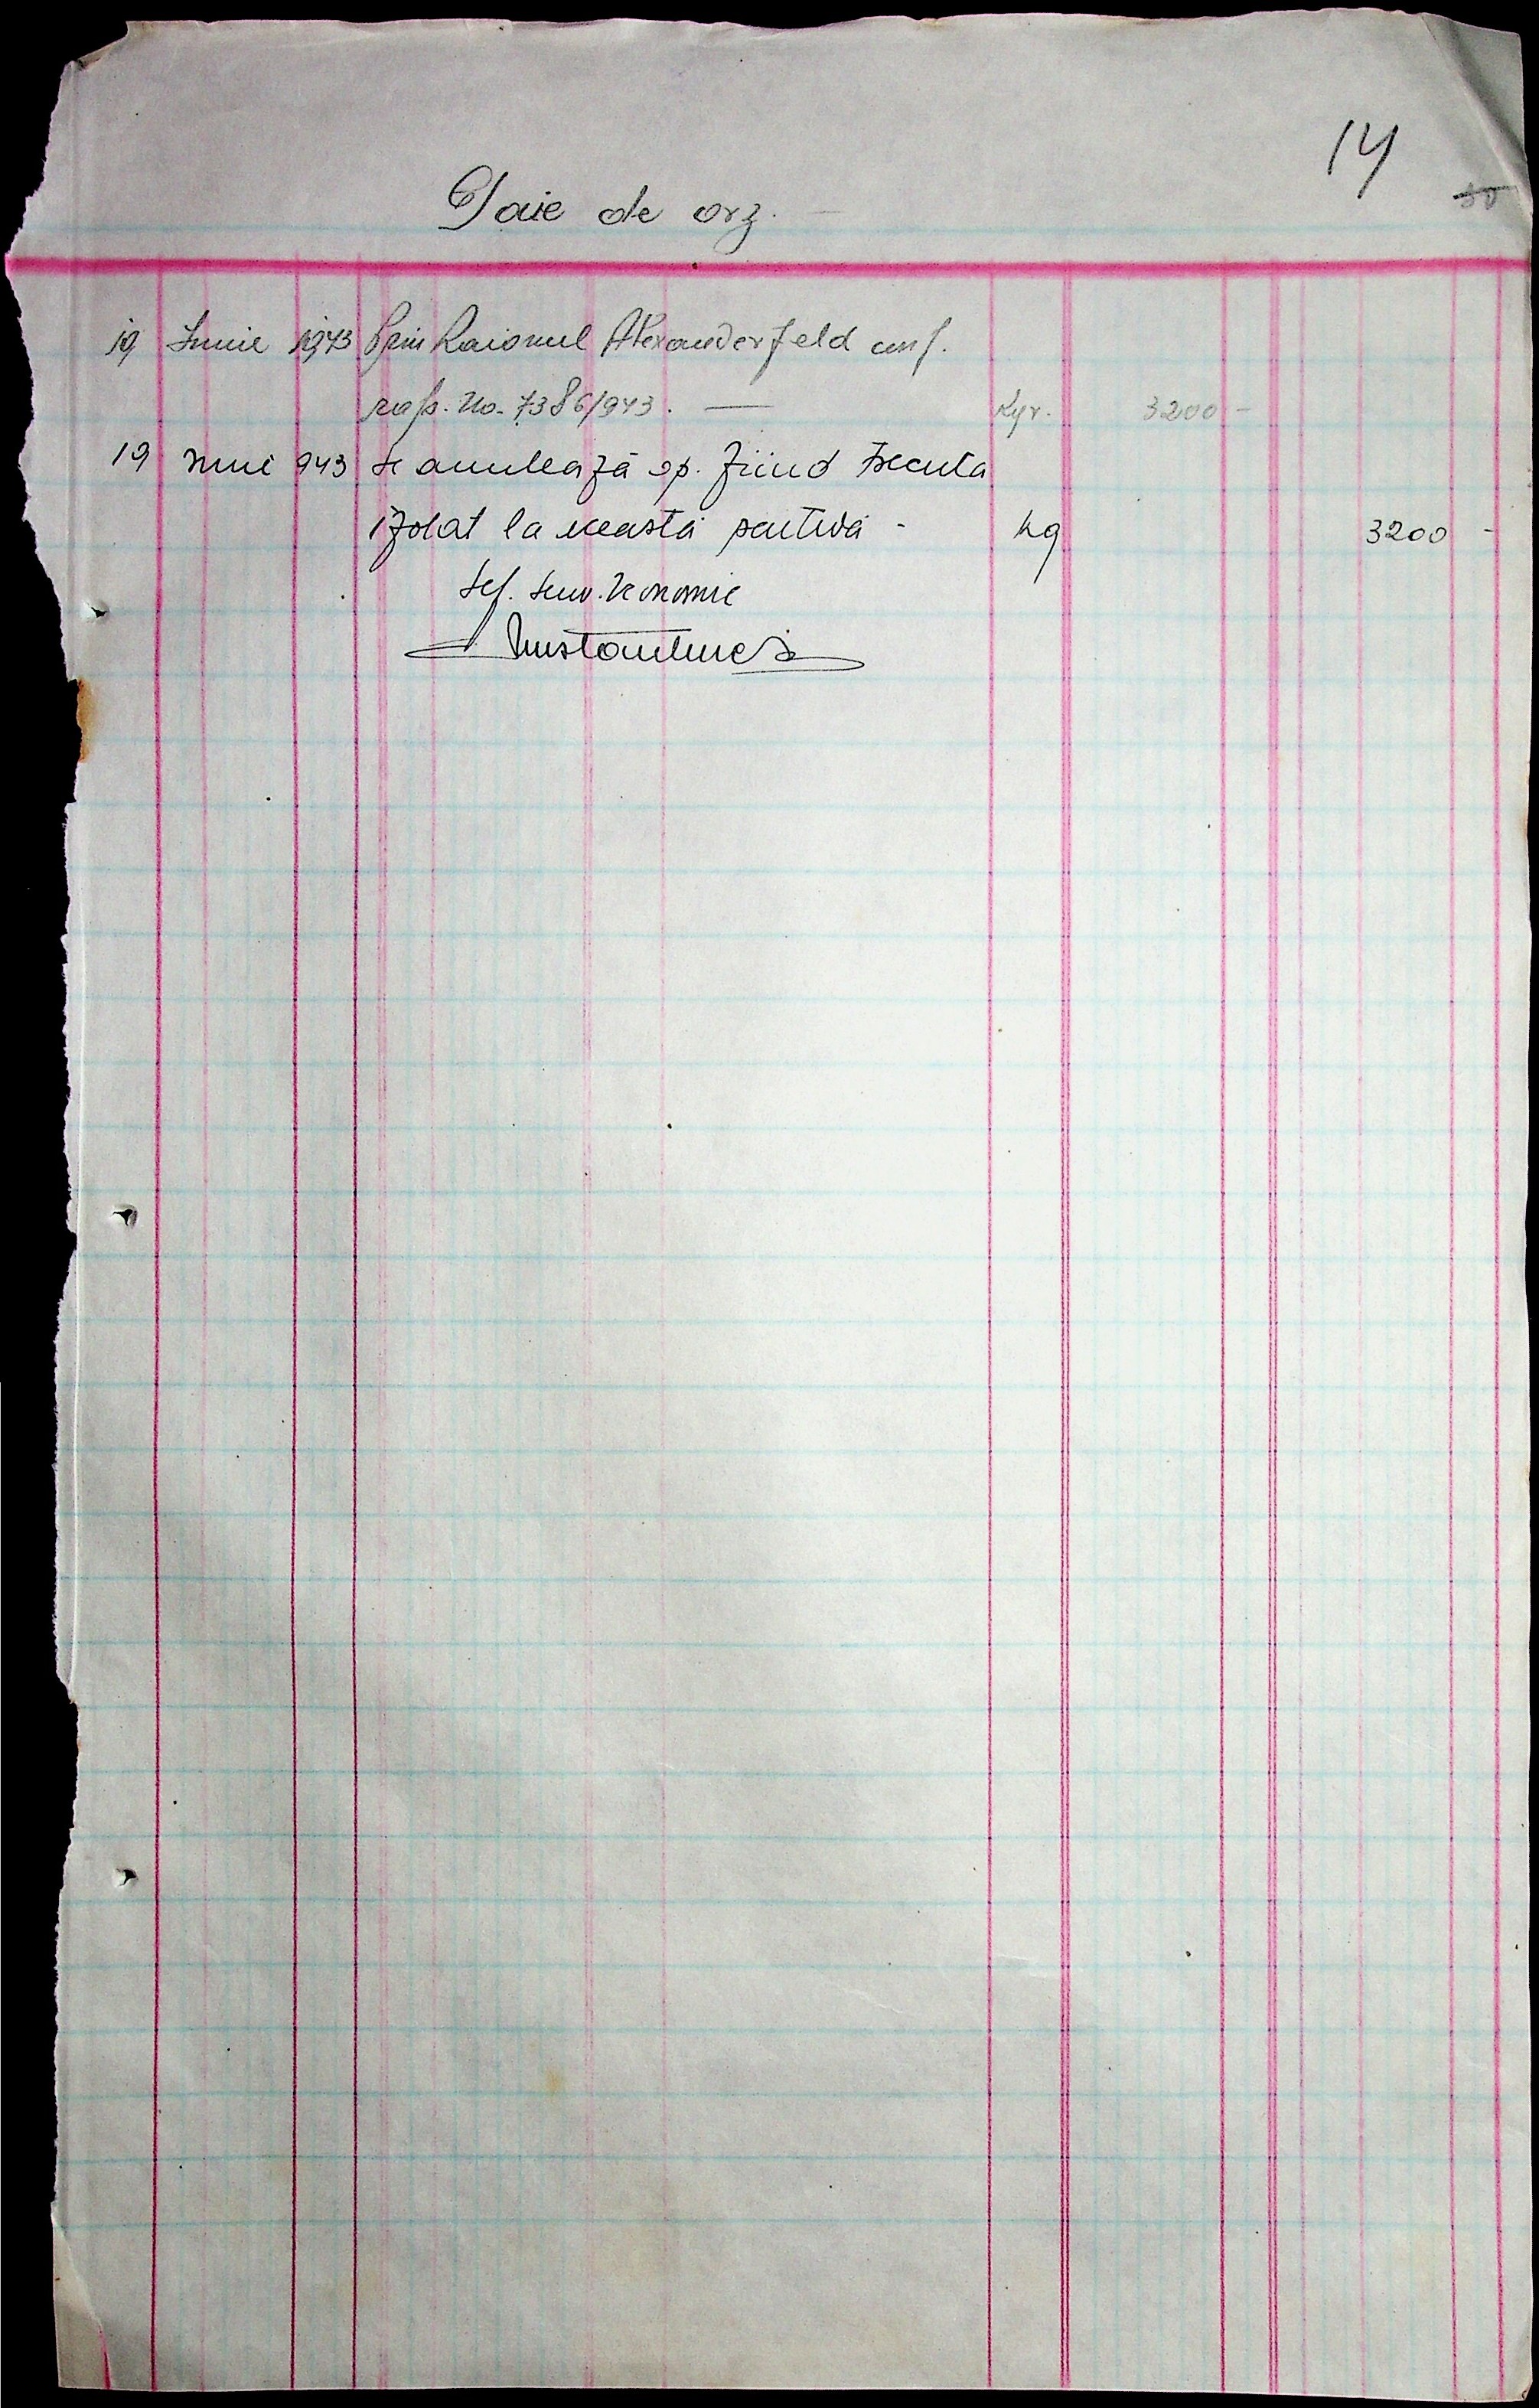 14
30
Paie de orz.
19 Iunie 1943 Prin Raionul Alexanderfeld conf.
rap. No. 7386/943. — Kgr. 3200 -
19 Iunie 943 Se anulează op. fiind trecută
izolat la această partidă - Kg 3200 -
Șef. Serv. Economic
Constantinescu